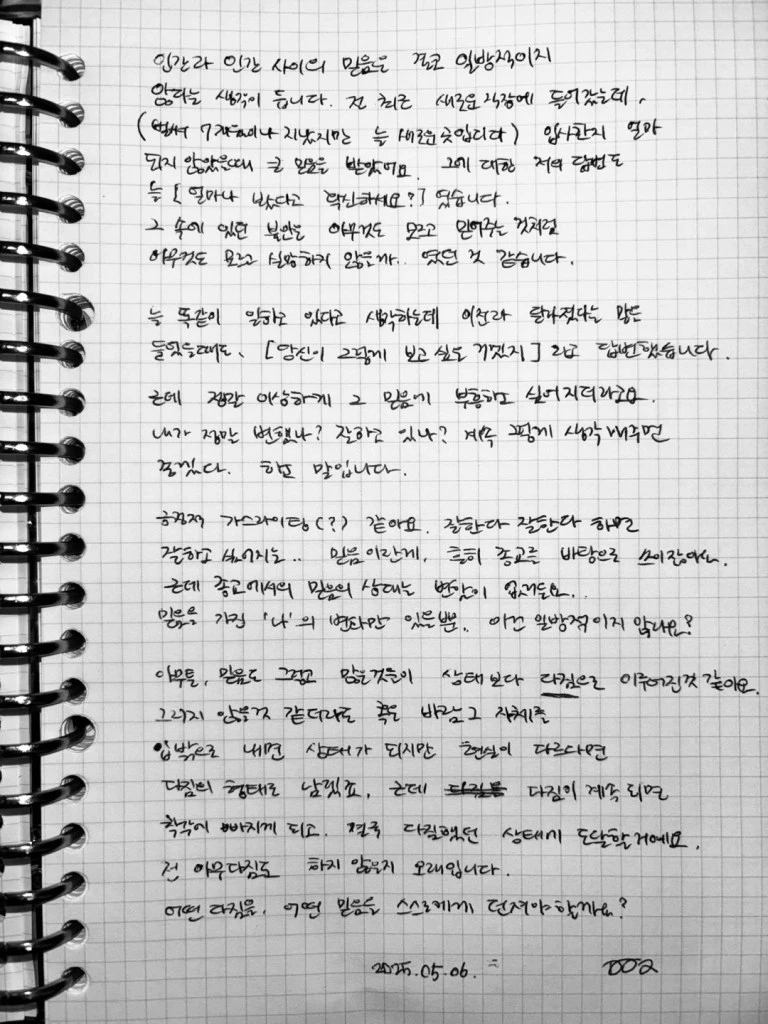 인간과 인간 사이의 믿음은 결코 일방적이지
않다는 생각이 듭니다. 전 최근 새로운 직장에 들어갔는데,
(벌써 7개월이나 지났지만 늘 새로운 곳입니다) 입사한지 얼마
되지 않았을때 큰 믿음을 받았어요. 그에 대한 저의 답변도
늘 [얼마나 봤다고 확신하세요?] 였습니다.
그 속에 있던 불안은 아무것도 모르고 믿어주는 것처럼
아무것도 모르고 실망하지 않을까.. 였던 것 같습니다.
늘 똑같이 일하고 있다고 생각하는데 이전과 달라졌다는 말은
들었을때도, [당신이 그렇게 보고 싶은 거겠지] 라고 답변했습니다.
근데 정말 이상하게 그 믿음에 부흥하고 싶어지더라고요.
내가 정말 변했나? 잘하고 있나? 계속 그렇게 생각해주면
좋겠다. 하고 말입니다.
긍정적 가스라이팅(?) 같아요. 잘한다 잘한다 하면
잘하고 싶어지는.. 믿음이란게, 흔히 종교를 바탕으로 쓰이잖아요.
근데 종교에서의 믿음의 상대는 변함이 없거든요..
믿음을 가진 '나'의 변화만 있을뿐.. 이건 일방적이지 않나요?
아무튼, 믿음도 그렇고 많은것들이 상태보다 다짐으로 이루어진것 같아요.
그러지 않을것 같더라도 혹은 바람 그 자체를
입밖으로 내면 상태가 되지만 현실이 다르다면
다짐의 형태로 남겠죠. 근데 다짐이 계속 되면
착각에 빠지게 되고. 결국 다짐했던 상태에 도달할거예요.
전 아무다짐도 하지 않은지 오래입니다.
어떤 다짐을, 어떤 믿음을 스스로에게 던져야 할까요?
2025.05.06.
002